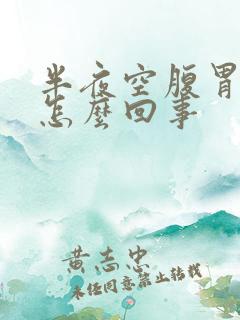 半夜空腹胃
怎麼回事
黃志忠
未经同意禁止转载